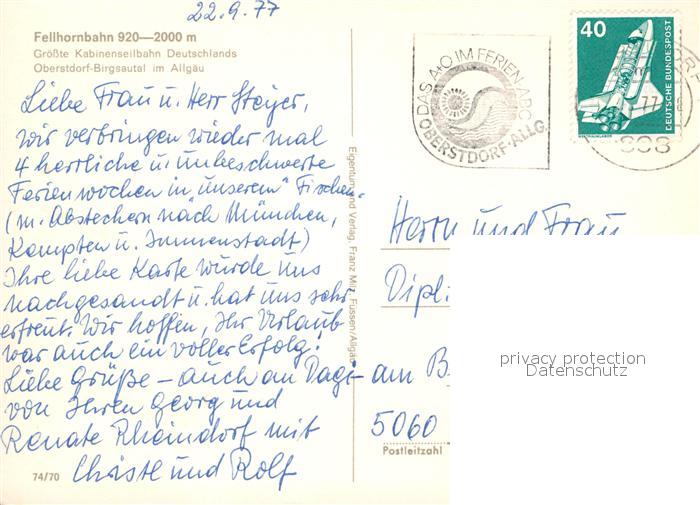 22.9.77
Fellhornbahn 920—2000 m
Größte Kabinenseilbahn Deutschlands
Oberstdorf-Birgsautal im Allgäu
Liebe Frau u. Herr Steyer,
wir verbringen wieder mal
4 herrliche u. unbeschwerte
Ferienwochen in „unserem" Fischen
(m. Abstechern nach München,
Kempten u. Immenstadt)
Ihre liebe Karte wurde uns
nachgesandt u. hat uns sehr
erfreut. Wir hoffen, Ihr Urlaub
war auch ein voller Erfolg!
Liebe Grüße – auch an Dagi –
von Ihren Georg und
Renate Rheindorf mit
und Rolf
74/70
Eigentum und Verlag, Franz Milz, Füssen/Allgäu
DAS A+O IM FERIEN ABC
OBERSTDORF-ALLG.
40
DEUTSCHE BUNDESPOST
Herrn und Frau
Dipl.
am B
5060
Postleitzahl
privacy protection
Datenschutz